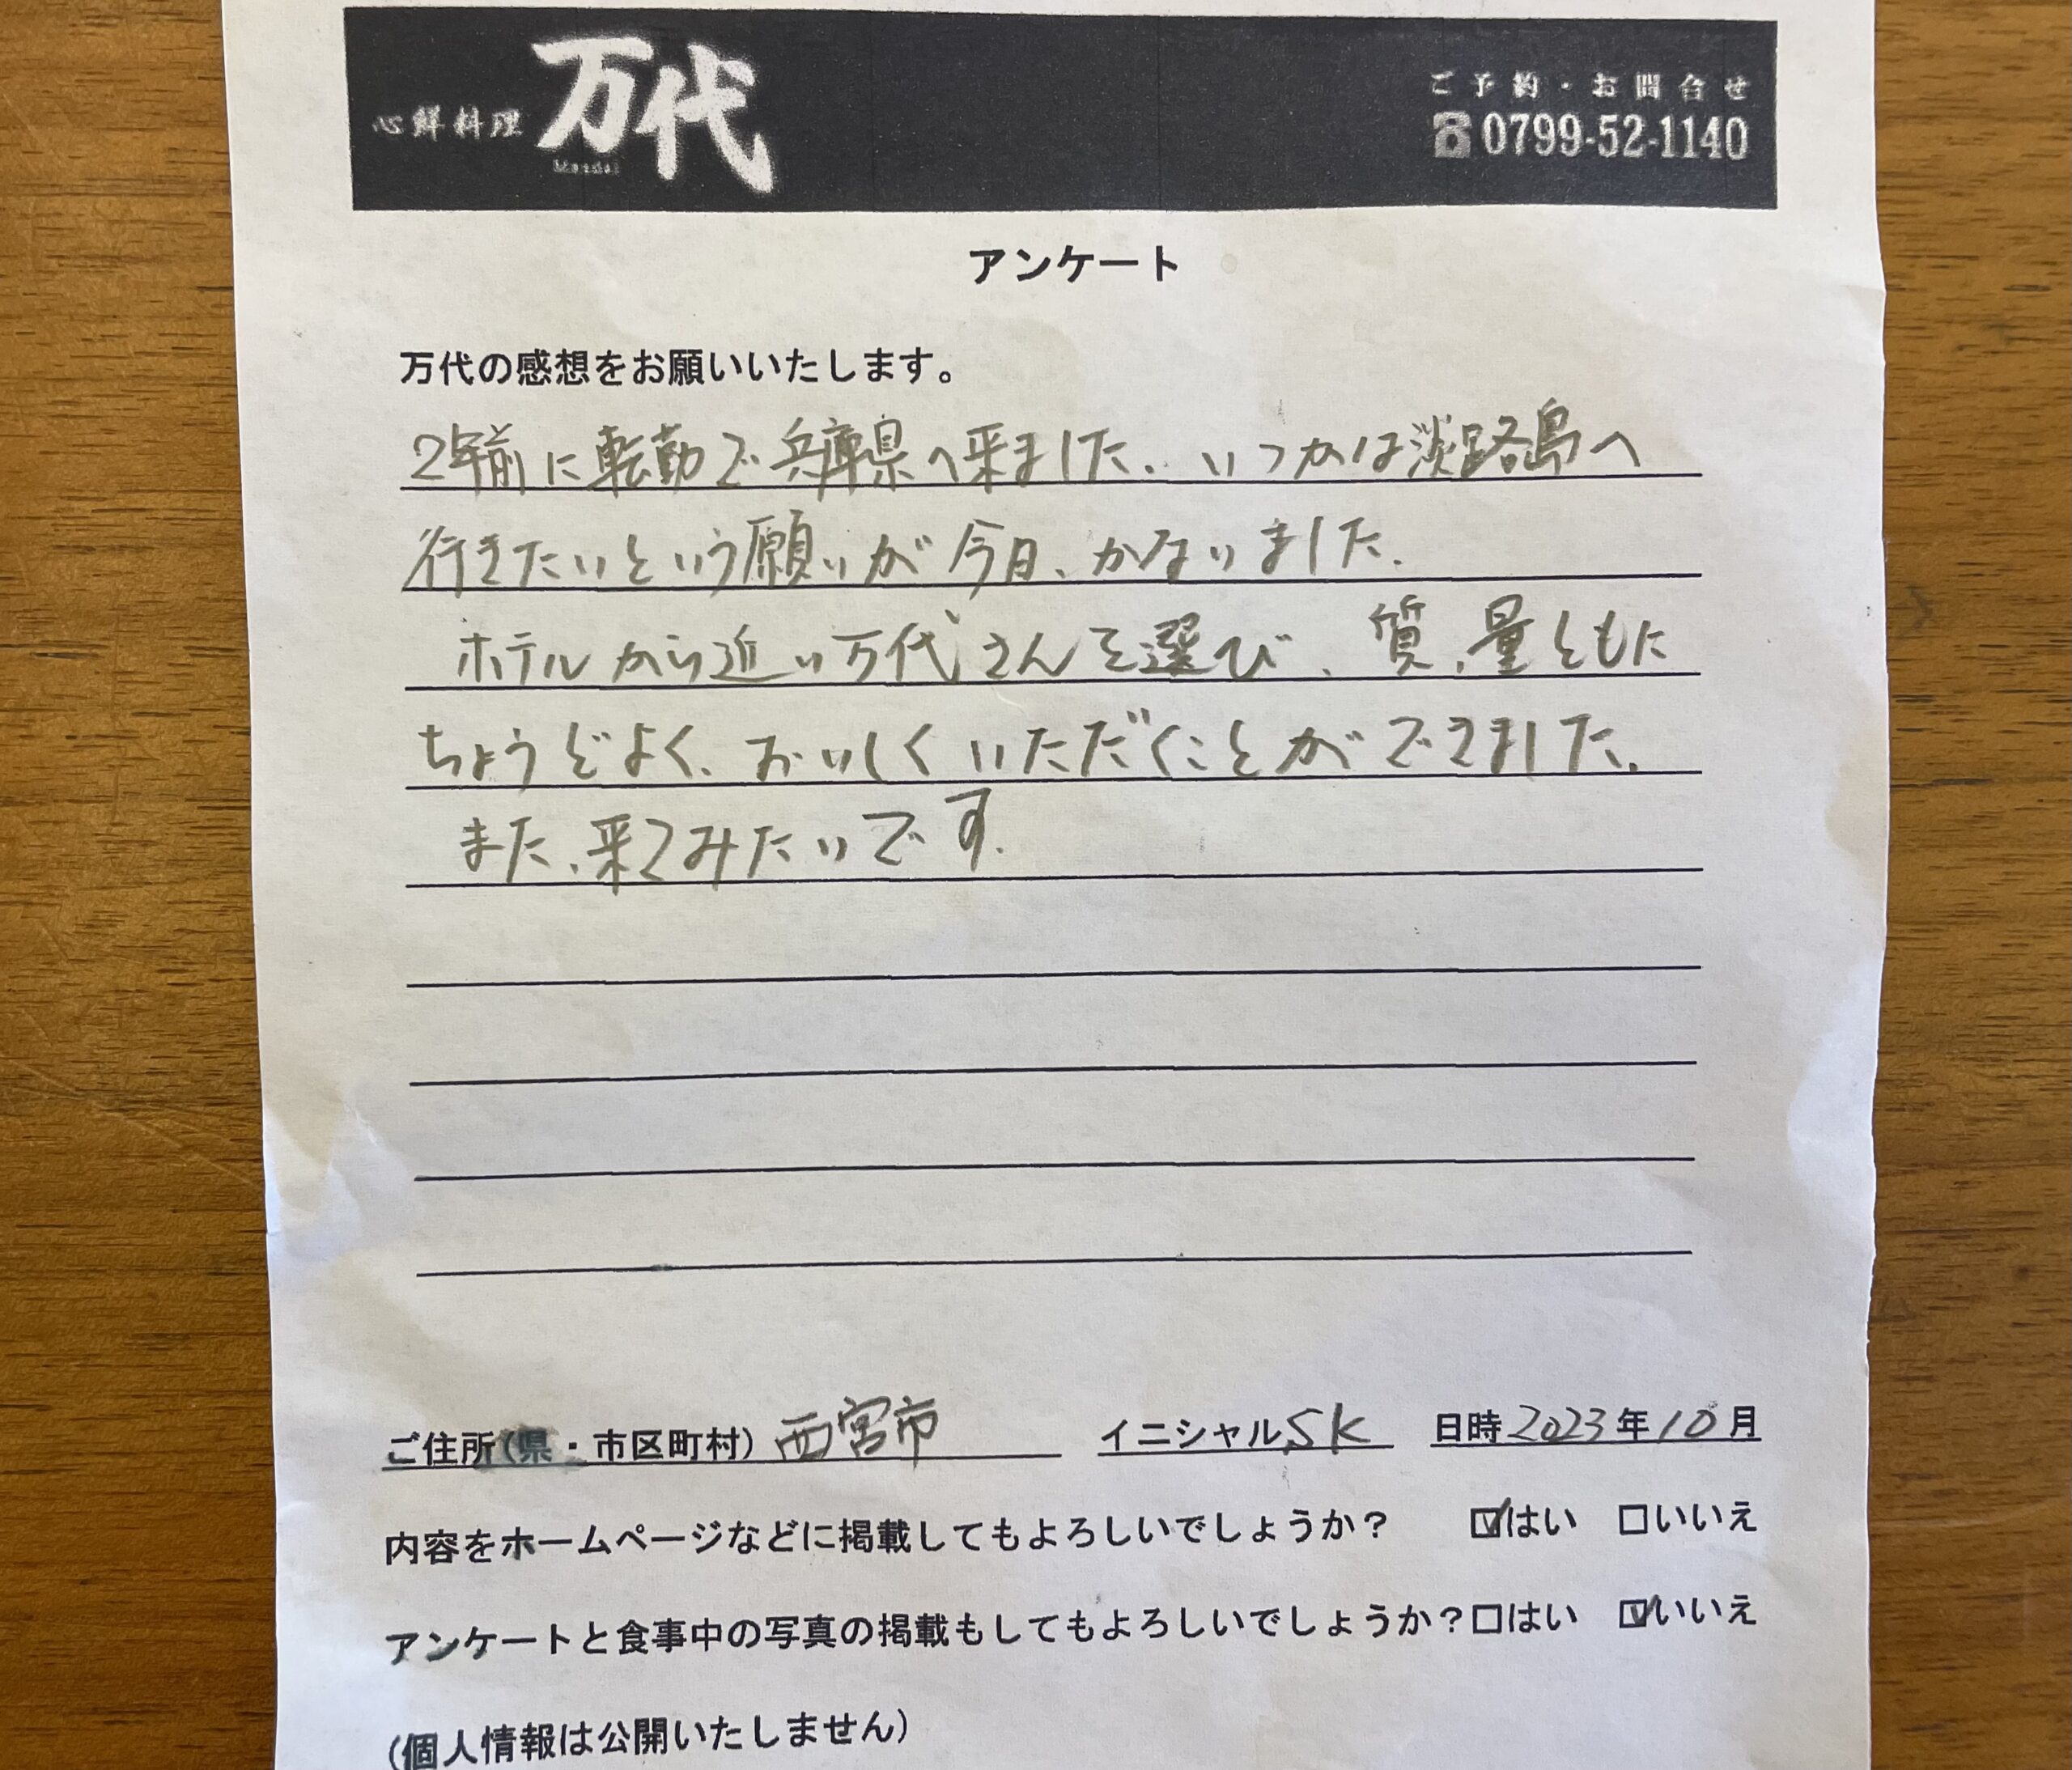 心鮮料理 万代
Mandai
ご予約・お問合せ
☎0799-52-1140
アンケート
万代の感想をお願いいたします。
2年前に転勤で兵庫県へ来ました。いつかは淡路島へ
行きたいという願いが今日、かないました。
ホテルから近い万代さんを選び、質、量ともに
ちょうどよく、おいしくいただくことができました。
また、来てみたいです。
ご住所(県・市区町村) 西宮市 イニシャル SK 日時 2023年10月
内容をホームページなどに掲載してもよろしいでしょうか？ ☑はい □いいえ
アンケートと食事中の写真の掲載もしてもよろしいでしょうか？□はい ☑いいえ
(個人情報は公開いたしません)